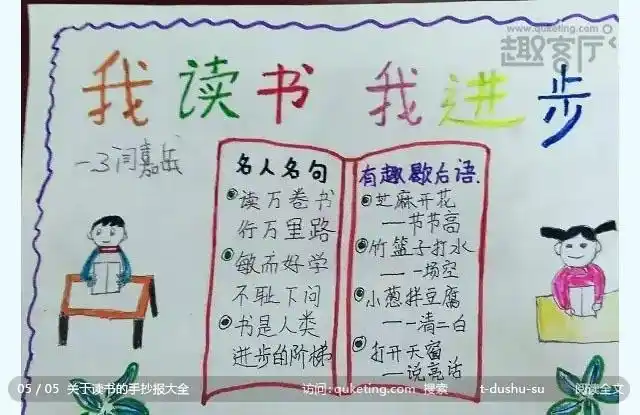 www.quketing.com
趣客厅
我读书 我进步
一3闫嘉岳
名人名句
读万卷书
行万里路
敏而好学
不耻下问
书是人类
进步的阶梯
有趣歇后语.
芝麻开花
——节节高
竹篮子打水
——一场空
小葱拌豆腐
——一清二白
打开天窗
——说亮话
05 / 05 关于读书的手抄报大全 访问: quketing.com 搜索 t-dushu-su 阅读全文